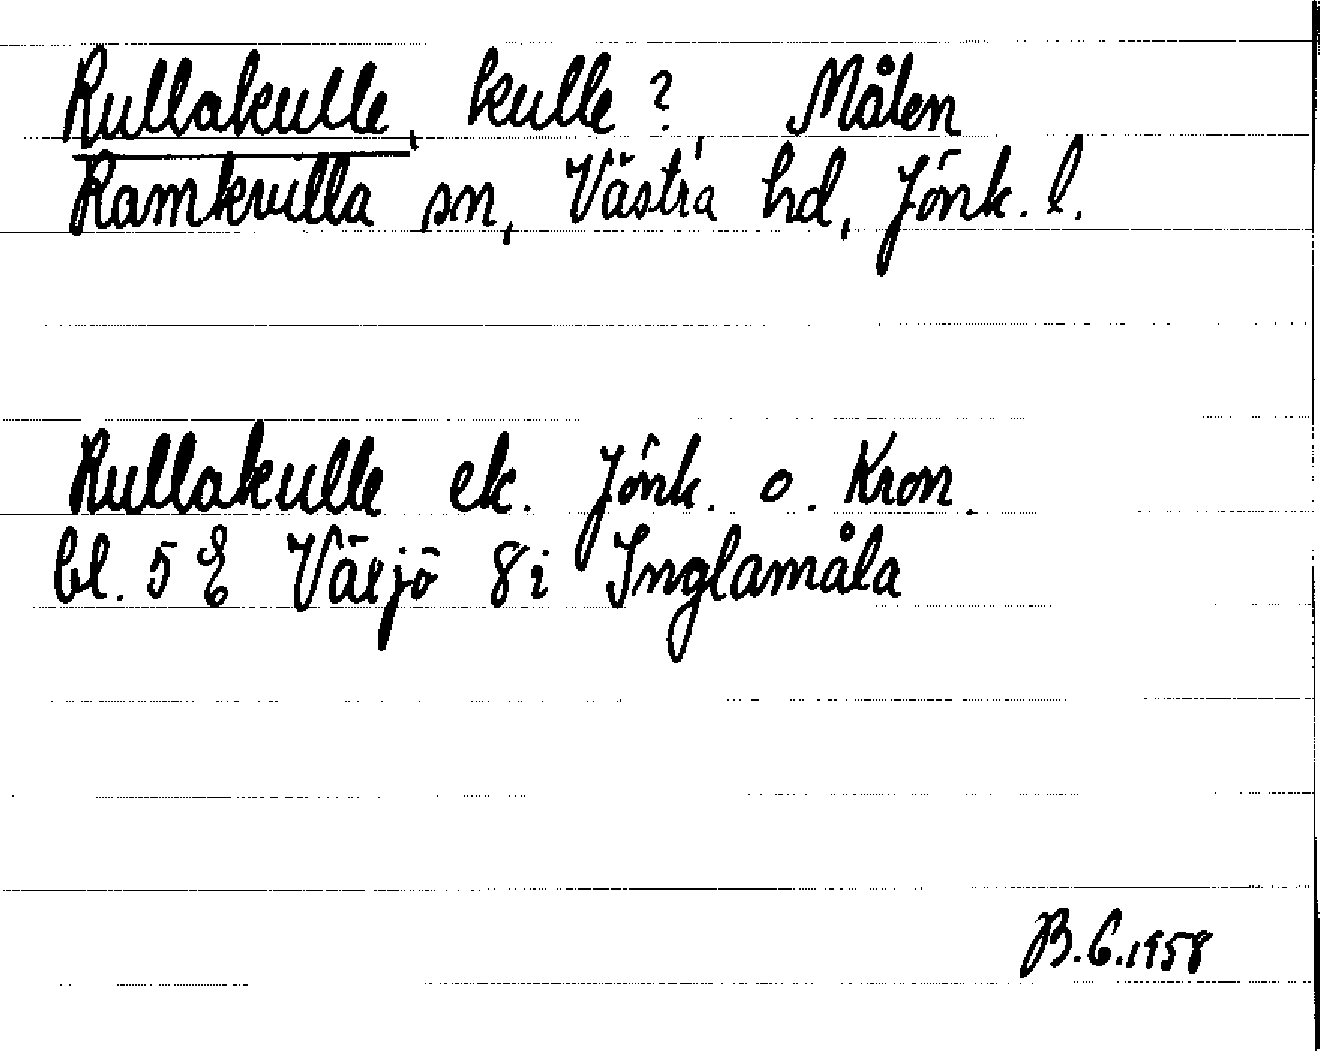 Rullakulle, kulle ?, Målen
Ramkvilla sn, Västra hd, Jönk. l.
Rullakulle ek. Jönk. o. Kron.
bl. 5 E Växjö 8i Inglamåla
B.C.1958